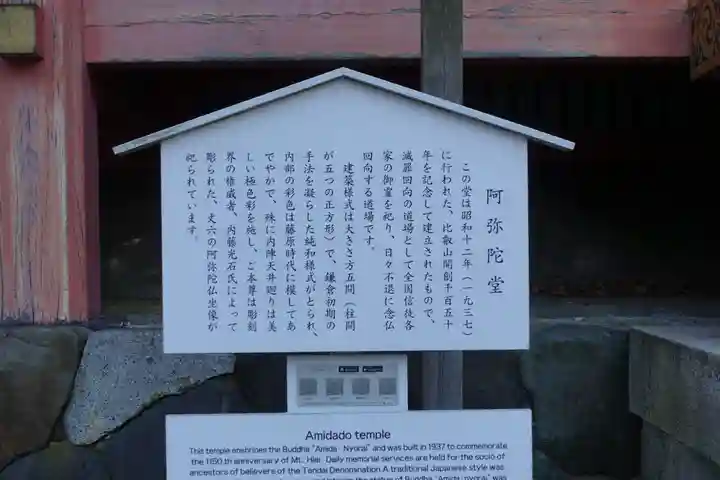 阿弥陀堂
この堂は昭和十二年（一九三七）
に行われた、比叡山開創千百五十
年を記念して建立されたもので、
滅罪回向の道場として全国信徒各
家の御霊を祀り、日々不退に念仏
回向する道場です。
建築様式は大きさ方五間（柱間
が五つの正方形）で、鎌倉初期の
手法を凝らした純和様式がとられ、
内部の彩色は藤原時代に模してあ
でやかで、殊に内陣天井廻りは美
しい極色彩を施し、ご本尊は彫刻
界の権威者、内藤光石氏によって
彫られた、丈六の阿弥陀仏坐像が
祀られています。
Amidado temple
This temple enshrines the Buddha "Amida Nyorai" and was built in 1937 to commemorate
the 1150 th anniversary of Mt. Hiei. Daily memorial services are held for the souls of
ancestors of believers of the Tendai Denomination.A traditional Japanese style was